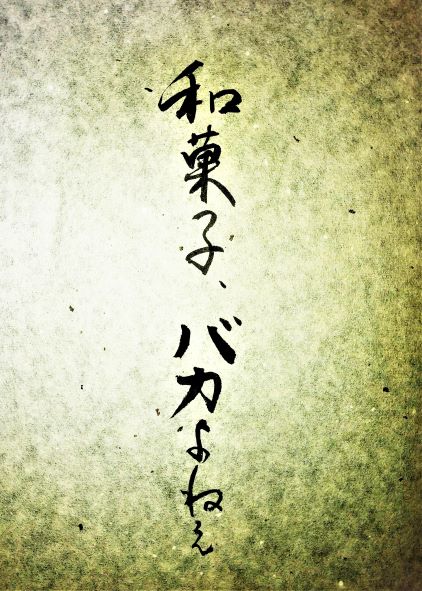 和菓子、バカよねぇ